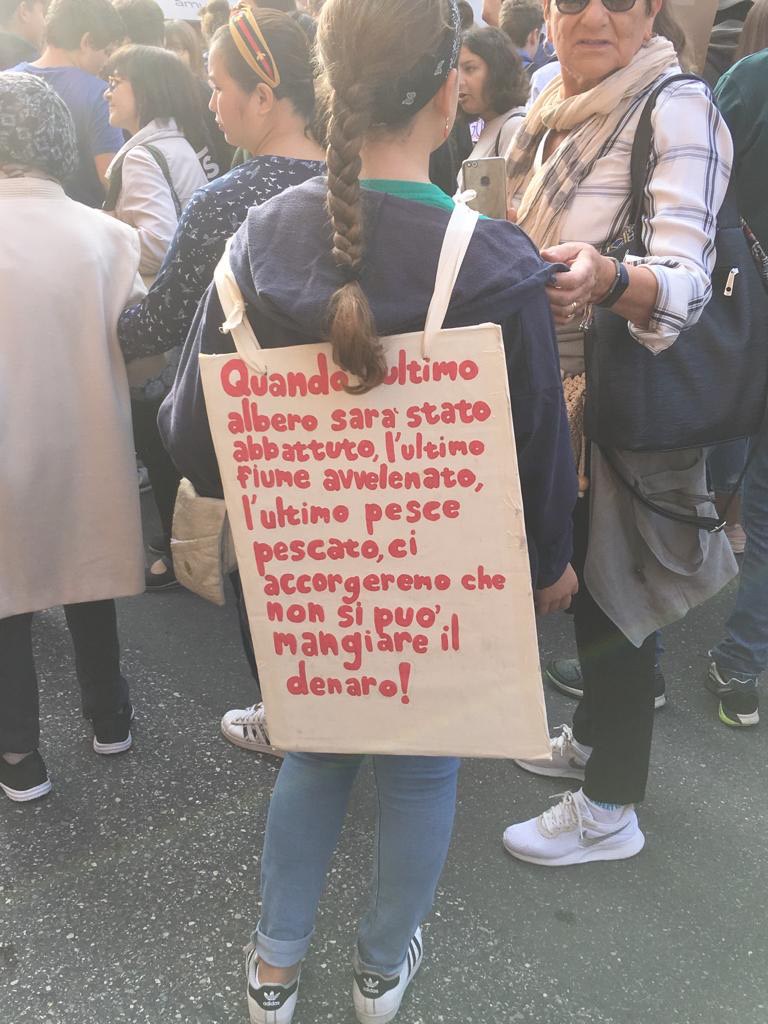 Quando ultimo
albero sara' stato
abbattuto, l'ultimo
fiume avvelenato,
l'ultimo pesce
pescato, ci
accorgeremo che
non si puo'
mangiare il
denaro!
adidas
adidas